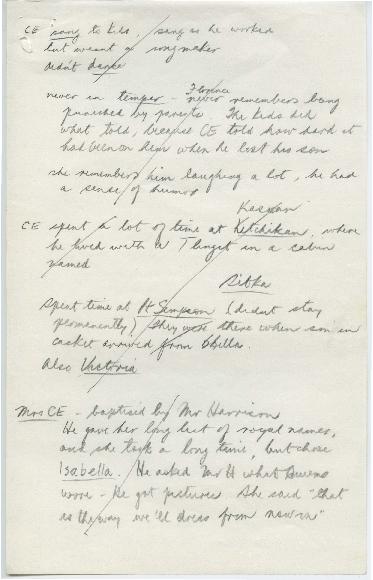 CE sang to kids, sing as he worked
but wasn't a songmaker
didn't dance
never in temper - Florence never remembers being
punished by parents. The kids did
what told, because CE told how hard it
had been on him when he lost his son
she remembers him laughing a lot, he had
a sense of humor
Kasaan
CE spent a lot of time at Ketchikan, where
he lived with a Tlingit in a cabin
named
Sitka
Spent time at Pt Simpson (didn't stay
permanently) they were there when son in
casket arrived from Bella.
Also Victoria
Mrs CE - baptised by Mr Harrison
He gave her long list of royal names,
and she took a long time, but chose
Isabella. He asked Mr H what Queens
wore - He got pictures. She said "that
is the way we'll dress from now on"